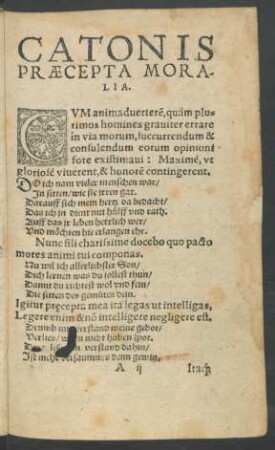 CATONIS
PRÆCEPTA MORA-
LIA.
CVM animaduerterē, quàm plu-
rimos homines grauiter errare
in via morum, succurrendum &
consulendum eorum opinioni
fore existimaui: Maximè, vt
gloriosè viuerent, & honorē contingerent.
DO ich nam vieler menschen war/
In sitten/ wie sie irren gar.
Darauff sich mein hertz da bedacht/
Das ich in dient mit hülff vnd rath.
Auff das je leben herrlich wer/
Vnd möchten hie erlangen ehr.
Nunc fili charissime docebo quo pacto
mores animi tui componas.
Nu wil ich allerliebster Son/
Dich lernen was du sollest thun/
Damit du richtest wol vnd fein/
Die sitten des gemüten dein.
Igitur præcepta mea ita legas ut intelligas,
Legere enim & nō intelligere negligere est.
Drumb verstand meine gebot/
Verlies/ nicht haben spot.
verstand dahin/
Ist nicht versaumnus dann gewin.
A ij Itaq́